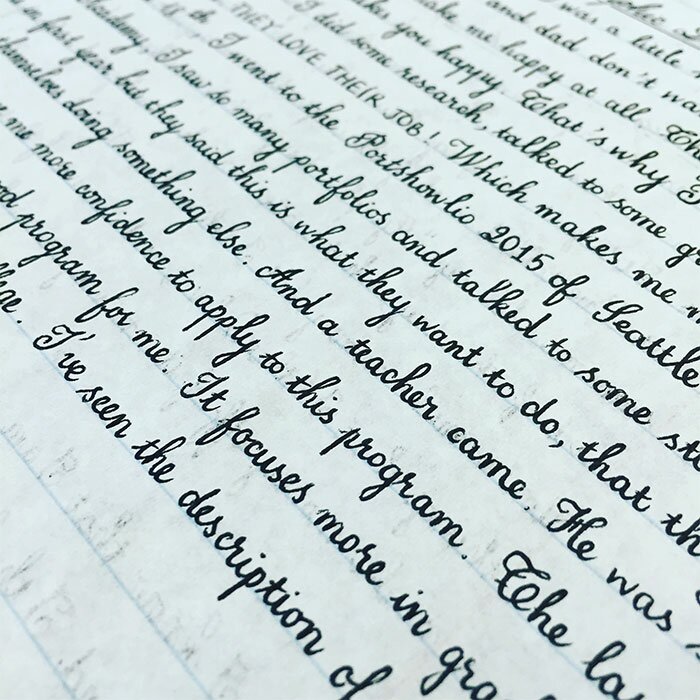 was a little
and dad don't wa
make me happy at all. Th
s you happy. That's why I
I did some research, talked to some gr
THEY LOVE THEIR JOB! Which makes me
I went to the Portshowlio 2015 of Seattle
academy. I saw so many portfolios and talked to some stu
in first year but they said this is what they want to do, that th
themselves doing something else. And a teacher came. He was
me more confidence to apply to this program. The la
od program for me. It focuses more in gra
ege. I've seen the description of